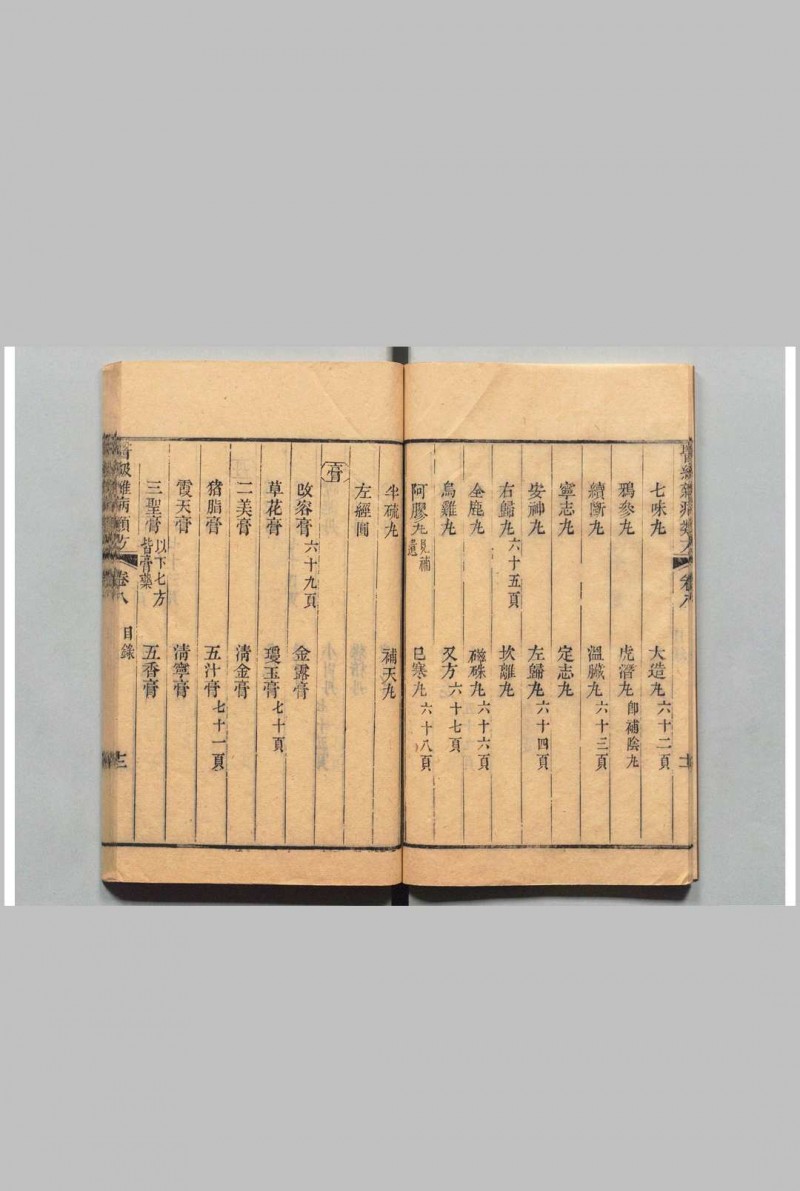 七味丸 大造丸六十二頁
鴉參丸 虎潛丸即補陰丸
續斷丸 溫臟丸六十三頁
寧志丸 定志丸
安神丸 左歸丸六十四頁
右歸丸六十五頁 坎離丸
全鹿丸 磁硃丸六十六頁
烏雞丸 又方六十七頁
阿膠丸見補遺 已寒丸六十八頁
半硫丸 補天丸
左經圓
膏
改容膏六十九頁 金露膏
草花膏 瓊玉膏七十頁
二美膏 清金膏
豬脂膏 五汁膏七十一頁
霞天膏 清寧膏
三聖膏以下七方皆膏藥 五香膏
醫級雜病類方 卷八 目錄 十二